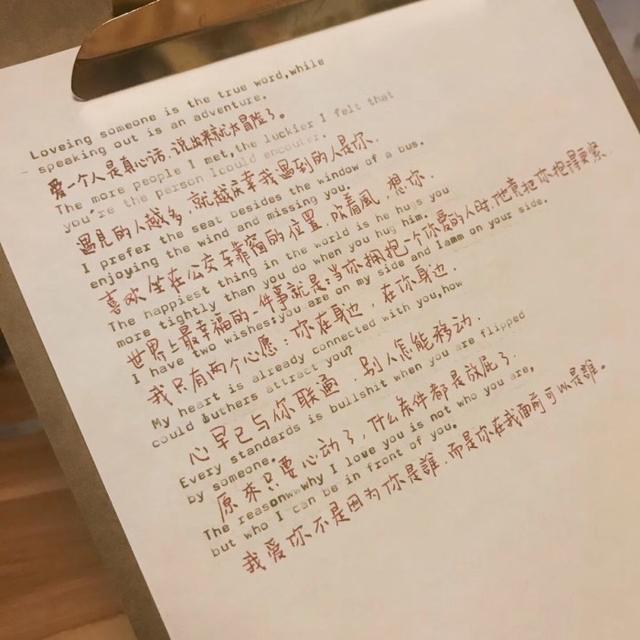 Loveing someone is the true word,while
speaking out is an adventure.
爱一个人是真心话,说出来就大冒险了。
The more people I met,the luckier I felt that
you're the person I could encouter.
遇見的人越多,就越庆幸我遇到的人是你.
I prefer the seat besides the window of a bus.
enjoying the wind and missing you.
喜欢坐在公交车靠窗的位置,吹着風,想你.
The happiest thing in the world is he hugs you
more tightly than you do when you hug him.
世界上最幸福的一件事就是:当你拥抱一个你爱的人时,他竟把你抱得更紧.
I have two wishes:you are on my side and Iame on your side.
我只有两个心愿:你在身边,在你身边.
My heart is already connected with you,how
could outhers attract you?
心早已与你联画,别人怎能移动.
Every standards is bullshit when you are flipped
by someone.
原来只要心动了,什么条件都是放屁了.
The reason why I love you is not who you are,
but who I can be in front of you.
我爱你不是因为你是誰,而是你在我面前可以是誰。